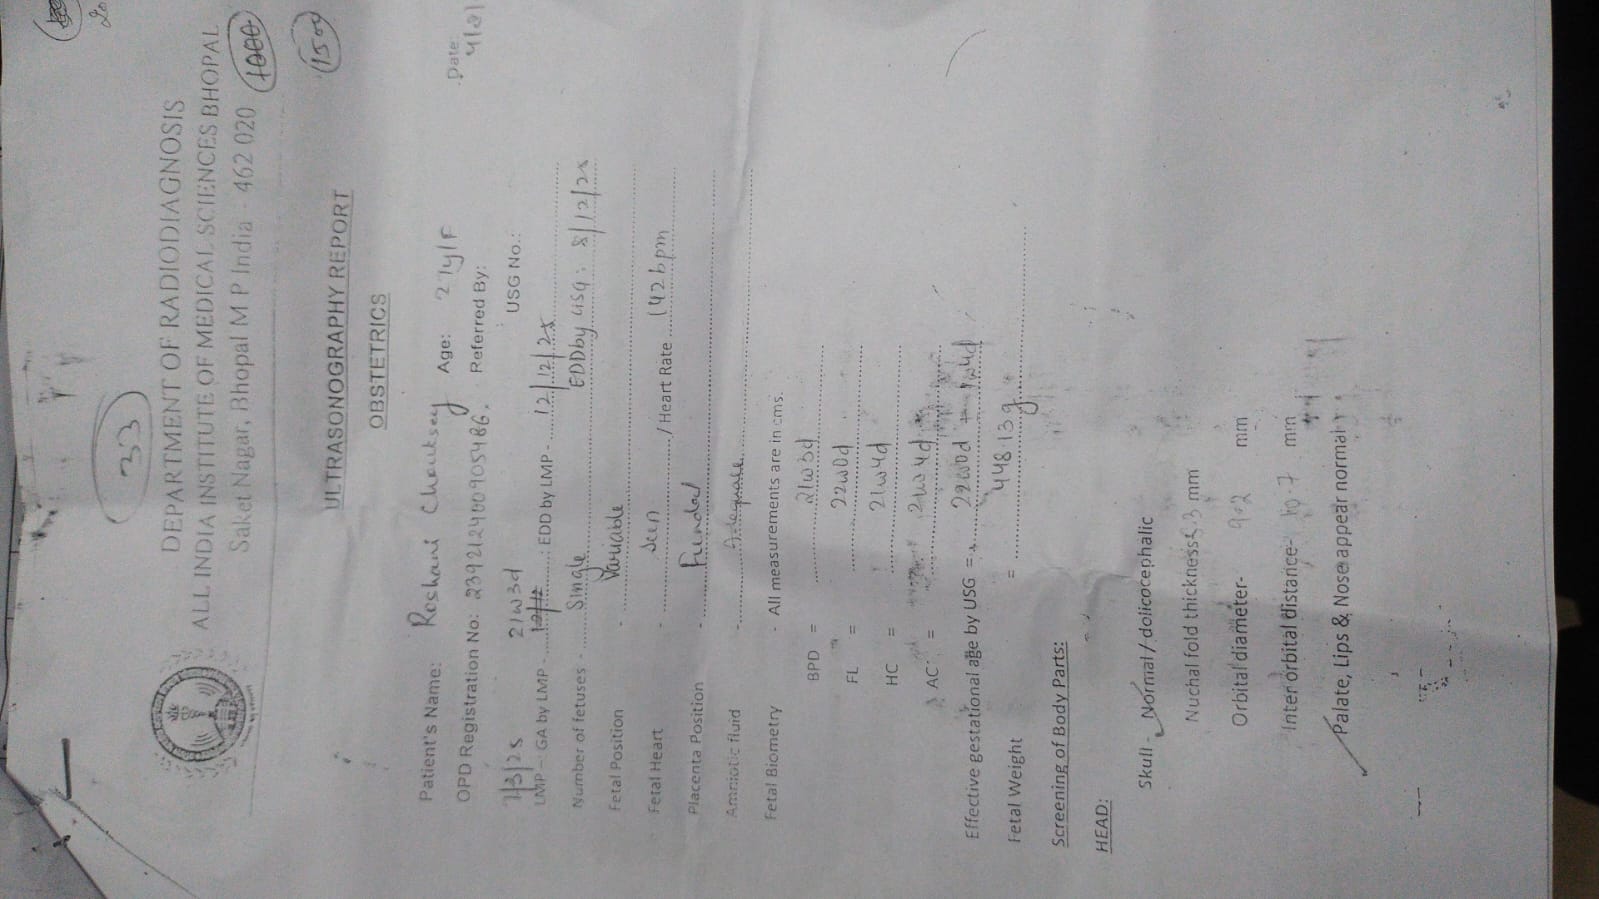 33
1000
1500
DEPARTMENT OF RADIODIAGNOSIS
ALL INDIA INSTITUTE OF MEDICAL SCIENCES BHOPAL
Saket Nagar, Bhopal M P India - 462 020
ULTRASONOGRAPHY REPORT
OBSTETRICS
Date:
Patient's Name: Roshani Chouksey Age: 27y/F
OPD Registration No.: 239212400905486. Referred By:
21w3d USG No.:
7/3/25
LMP - GA by LMP - EDD by LMP - 12/12/25
Number of fetuses - Single EDD by USG: 8/12/25
Fetal Position - Variable
Fetal Heart - Seen / Heart Rate 142bpm
Placenta Position - Fundal
Amniotic fluid - Adequate
Fetal Biometry - All measurements are in cms.
BPD = 21w3d
FL = 22w0d
HC = 21w4d
AC = 21w4d
Effective gestational age by USG = 22w0d
Fetal Weight = 448.13g
Screening of Body Parts:
HEAD:
Skull - Normal / dolicocephalic
Nuchal fold thickness mm
Orbital diameter- 9.2 mm
Inter orbital distance- mm
Palate, Lips & Nose appear normal